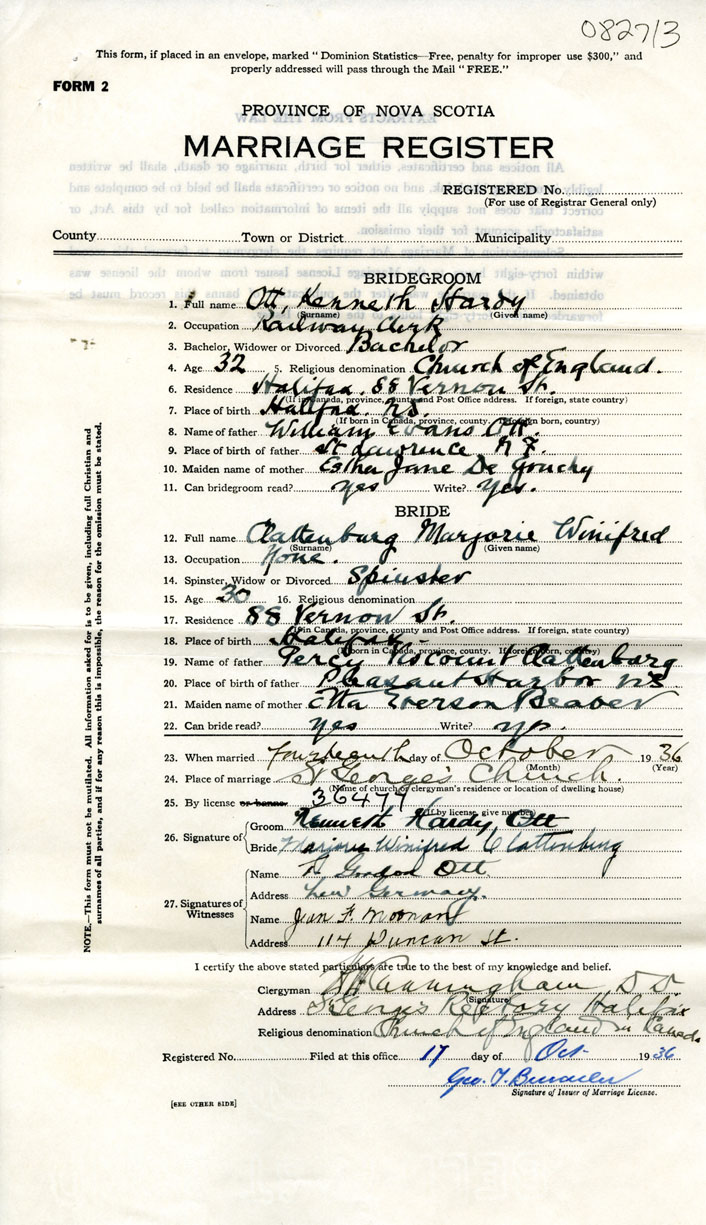 082713
This form, if placed in an envelope, marked "Dominion Statistics—Free, penalty for improper use $300," and
properly addressed will pass through the Mail "FREE."
FORM 2
PROVINCE OF NOVA SCOTIA
MARRIAGE REGISTER
REGISTERED No.
(For use of Registrar General only)
County Town or District Municipality
BRIDEGROOM
1. Full name Ott, Kenneth Hardy
(Surname) (Given name)
2. Occupation Railway Clerk
3. Bachelor, Widower or Divorced Bachelor
4. Age 32 5. Religious denomination Church of England.
6. Residence Halifax, 88 Vernon St.
(If in Canada, province, county and Post Office address. If foreign, state country)
7. Place of birth Halifax. N.S.
(If born in Canada, province, county. If foreign born, country)
8. Name of father William Evans Ott.
9. Place of birth of father St Lawrence N F.
10. Maiden name of mother Esther Jane De Gouchy
11. Can bridegroom read? yes Write? yes.
BRIDE
12. Full name Clattenburg Marjorie Winifred
(Surname) (Given name)
13. Occupation None.
14. Spinster, Widow or Divorced Spinster
15. Age 30 16. Religious denomination
17. Residence 88 Vernon St.
(If in Canada, province, county and Post Office address. If foreign, state country)
18. Place of birth Halifax.
(If born in Canada, province, county. If foreign born, country)
19. Name of father Percy Viscount Clattenburg
20. Place of birth of father Pleasant Harbor NS
21. Maiden name of mother Etta Everson Beaver
22. Can bride read? yes Write? yes.
23. When married fourteenth day of October 1936
(Month) (Year)
24. Place of marriage St George's Church.
(Name of church or clergyman's residence or location of dwelling house)
25. By license or banns 36479
(If by license, give number)
26. Signature of Groom Kenneth Hardy Ott
Bride Marjorie Winifred Clattenburg
27. Signatures of Witnesses Name Gordon Ott
Address New Germany.
Name Jean F.
Address 114 Duncan St.
I certify the above stated particulars are true to the best of my knowledge and belief.
Clergyman Cunningham D D
(Signature)
Address St George's Rectory Halifax
Religious denomination Church of England in Canada
Registered No. Filed at this office 17 day of Oct. 1936
Geo. T.
Signature of Issuer of Marriage License.
[SEE OTHER SIDE]
NOTE.—This form must not be mutilated. All information asked for is to be given, including full Christian and
surnames of all parties, and if for any reason this is impossible, the reason for the omission must be stated.